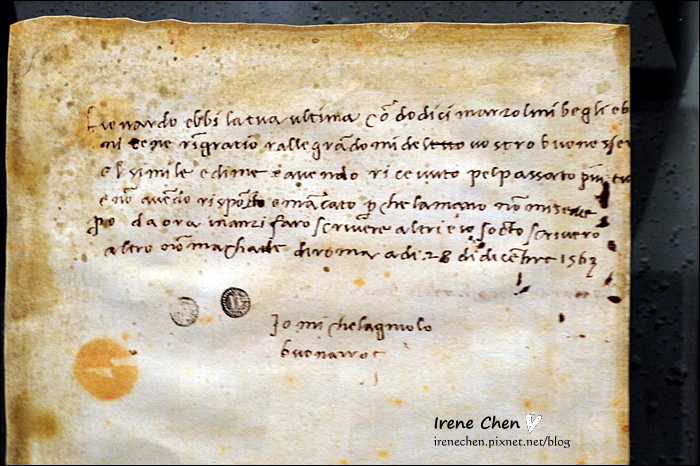 Lionardo ebbi la tua ultima cō dodici marzolini begli e b
mi te ne rīgratio rallegrādomi del vostro buone sser
e l simile e di me e avendo ricevuto pel passato più tu
e nō avēdo risposto e mācato p che la mano nō mi serve
po da ora inanzi farò scrivere altri e io sottō scriverò
altro nō machade di roma a di 28 di dicēbre 1563
Io michelagniolo
buonarroti
Irene Chen
irenechen.pixnet.net/blog